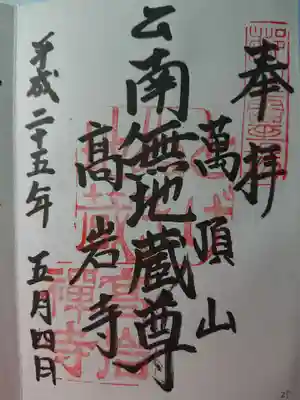 奉拝
萬頂山
南無地蔵尊
髙岩寺
平成二十五年 五月四日
禪寺